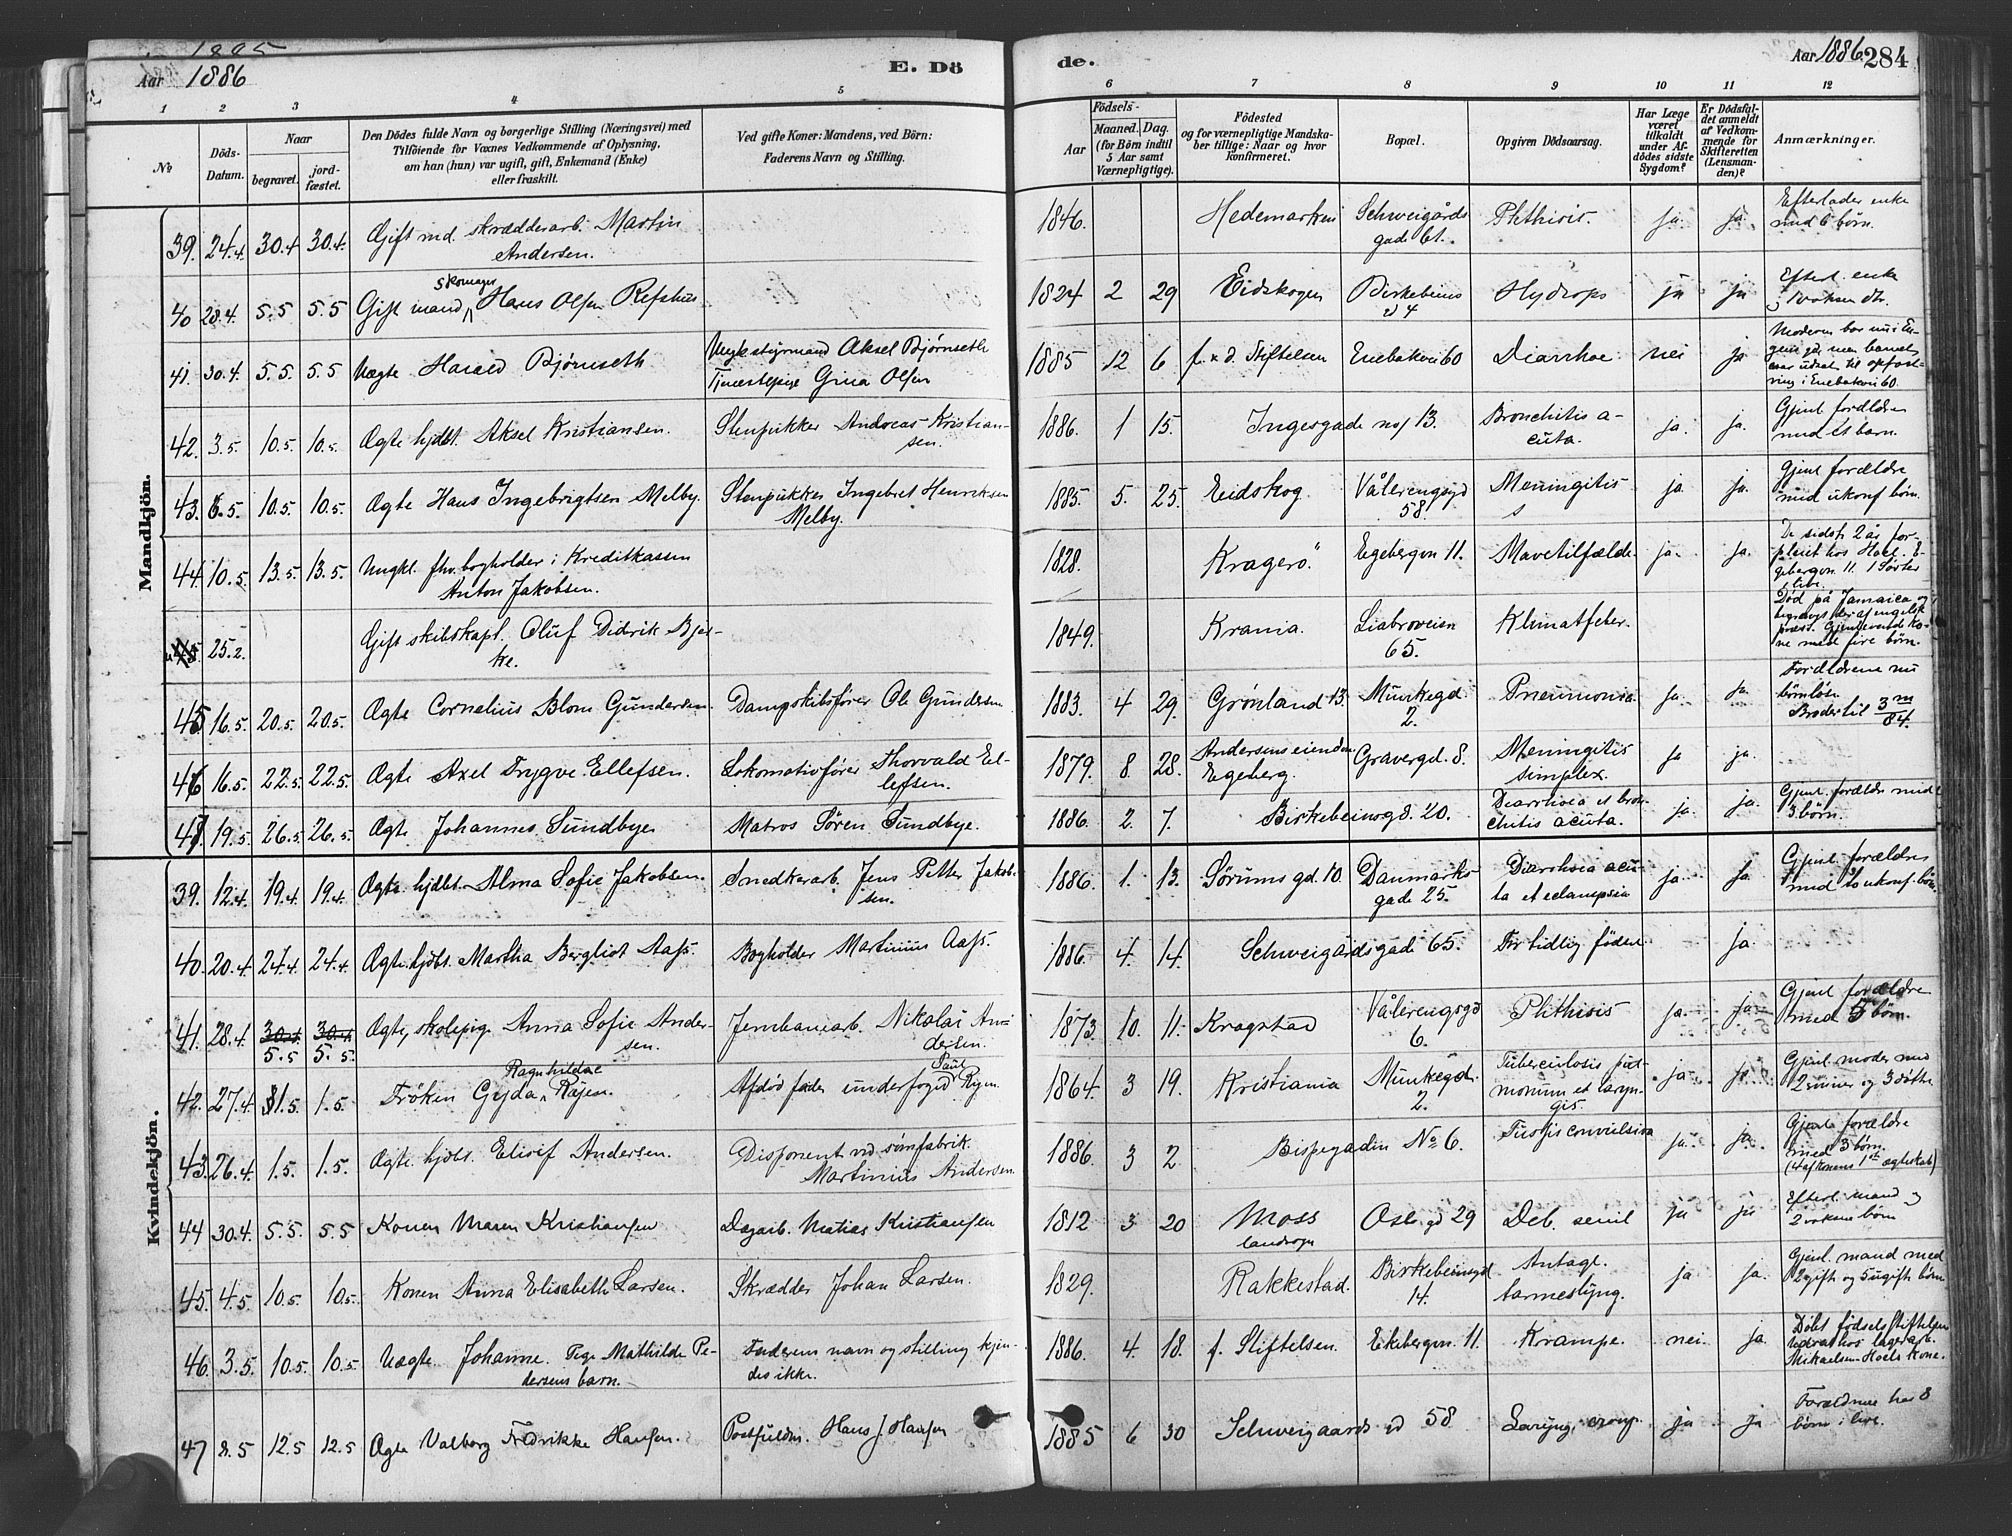 1885
Aar 1886
E. Dö
de.
Aar 1886.
284
1 2 3 4 5 6 7 8 9 10 11 12
No
Döds-Datum.
Naar
begravet. jord-fæstet.
Den Dödes fulde Navn og borgerlige Stilling (Næringsvei) med
Tilföiende for Voxnes Vedkommende af Oplysning,
om han (hun) var ugift, gift, Enkemand (Enke)
eller fraskilt.
Ved gifte Koner: Mandens, ved Börn:
Faderens Navn og Stilling.
Födsels-
Aar Maaned. Dag.
(for Börn indtil 5 Aar samt Værnepligtige).
Födested
og for værnepligtige Mandska-
ber tillige: Naar og hvor
konfirmeret.
Bopæl.
Opgiven Dödsaarsag.
Har Læge været tilkaldt under Af-dödes sidste Sygdom?
Er Dödsfal-det anmeldt af Vedkom-mende for Skifteretten (Lensman-den)?
Anmærkninger.
Mandkjön.
39. 24.4. 30.4 30.4. Gift md. skrædderarb. Martin Andersen. 1846. Hedemarken Schweigårds gade 61. Phthisis. ja. ja. Efterlader enke med 6 børn.
40 28.4. 5.5 5.5 Gift mand, skomager Hans Olsen Refshus 1824 2 29 Eidskogen Birkebeins gd 4 Hydrops ja ja Efterl. enke
41. 30.4. 5.5. 5.5 Uægte Harald Bjørnseth Ungk. styrmand Aksel Bjørnseth Tjenestepige Gina Olsen 1885 12 6 f. x d. Stiftelsen Enebakvei 60 Diarrhoe nei ja
42. 3.5. 10.5 10.5. Ægte hjdbt. Aksel Kristiansen. Stenpukker Andreas Kristiansen. 1886. 1 15. Ingesgade no 13. Bronchitis acuta. ja. ja. Gjenl. forældre med et barn.
43. 6.5. 10.5. 10.5. Ægte Hans Ingebrigtsen Melby. Stenpukker Ingebret Henriksen Melby. 1885. 5. 25. Eidskog Vålerengsgd 58. Meningitis ja ja. Gjenl. forældre med ukonf børn.
44. 10.5. 13.5. 13.5. Ungkl. fhv. bogholder i Kreditkassen Anton Jakobsen. 1828. Kragerö Egebergvn 11. Mavetilfælde ja. ja. De sidste 2 år forpleiet hos Hoel. Egebergvn. 11. 1 Søster i live.
25.2. Gift skibskapt. Oluf Didrik Bjerke. 1849. Krania. Liabroveien 65. Klimatfeber. Død på Jamaica og
45 16.5. 20.5. 20.5. Ægte Cornelius Blom Gundersen. Dampskibsfører Ole Gundersen 1883. 4 29. Grønland 13. Munkegd. 2. Pneumonia ja. ja. Forældrene nu børnløse. Broder til 3 m/84.
46 16.5. 22.5. 22.5. Ægte Axel Trygve Ellefsen. Lokomotivfører Thorvald Ellefsen. 1879. 8. 28. Andersens eiendom Egeberg. Gravergd. 8. Meningitis simplex. ja ja.
47. 19.5 26.5. 26.5. Ægte Johannes Sundbye Matros Søren Sundbye. 1886. 2. 7. Birkebeinsgd. 20. Diarrhoea et bronchitis acuta. ja. ja. Gjenl. forældre med 3 børn.
Kvindekjön.
39. 12.4. 19.4 19.4. Ægte hjdbt. Alma Sofie Jakobsen. Snedkerarb. Jens Petter Jakobsen. 1886. 1. 13. Sørums gd. 10. Danmarks gade 25. Diarrhoea acuta et eclampsia ja. ja. Gjenl. forældre
40. 20.4. 24.4. 24.4. Ægte hjdbt. Martha Bergliot Aass. Bogholder Martinius Aass. 1886. 4. 14. Schweigårdsgade 65. For tidlig födsel ja.
41. 28.4. 30.4. 30.4 5.5 5.5. Ægte, skolepige Anna Sofie Andersen. Jernbanearb. Nikolai Andersen. 1873. 10. 11. Kragstad Vålerengsgd 6. Phthisis ja. ja. Gjenl forældre med 5 børn.
42. 27.4. 1.5. 1.5. Frøken Gyda Ragnhilda Ryen. Afdød fader underfoged Paul Ryen. 1864. 3 19. Kristiania Munkegd. 2. Tuberculosis pulmonum et laryngis. ja. ja. Gjenl. moder med
43. 26.4. 1.5. 1.5. Ægte hjdbt. Elisif Andersen. Disponent ved sömfabrik. Martinius Andersen. 1886. 3 2 Bispegaden No 6. Tussis convulsiva ja. ja. Gjenl. forældre med 3 børn. (4 af konens 1ste ægteskab)
44 30.4. 5.5. 5.5 Konen Maren Kristiansen Dagarb. Matias Kristiansen 1812 3 20 Moss landsogn Oslo gd 29 Deb. senil ja ja Efterl. mand og 2 voksne børn
45. 4.5 10.5. 10.5. Konen Anna Elisabeth Larsen. Skrædder Johan Larsen. 1829. Rakkestad. Birkebeinsgd 14. Antagl. tarmeslyng. ja ja. Gjenl. mand med 2 gifte og 5 ugift börn
46. 3.5. 10.5. 10.5. Uægte Johanne. Pige Mathilde Pedersens barn. Faderens navn og stilling kjendes ikke. 1886. 4. 18. f. Stiftelsen. Ekebergvn. 11. Krampe. nei. ja. Döbt fødselsstiftelsen
47 8.5 12.5 12.5 Ægte Valborg Fredrikke Hansen. Postfuldm. Hans J. Hansen 1885 6 30 Schweigaards gd 58 Laryng. croup. ja ja Forældrene har 8 børn i live.